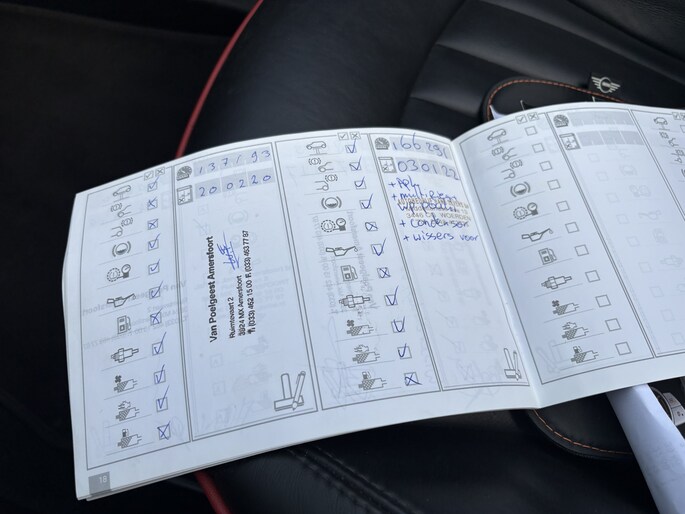 137193
200220
Van Poelgeest Amersfoort
Ruimtevaart 2
3824 MX Amersfoort
T. (033) 462 15 00 F. (033) 463 77 87
166291
03.01.22
+ multiriem
+ condensor
+ wissers voor
18